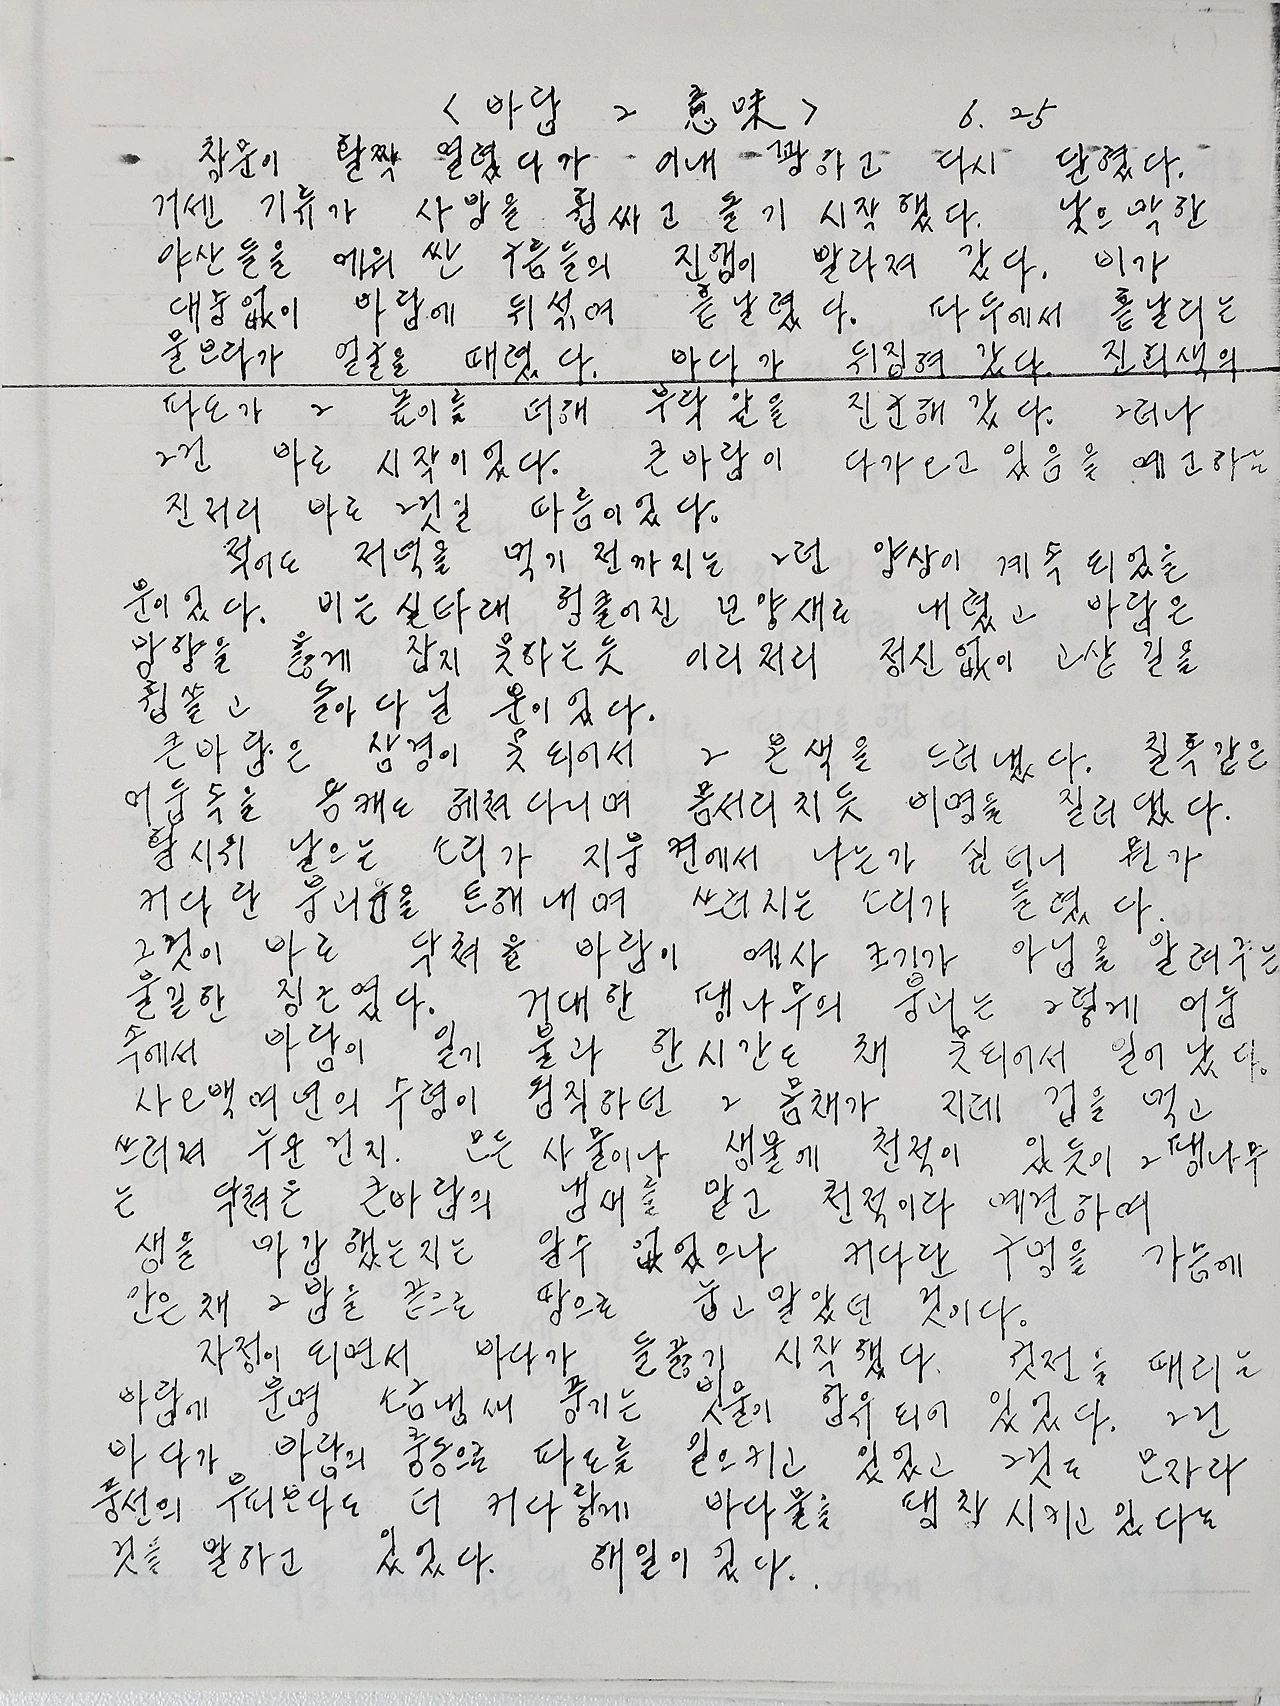 < 바람 그 意味 > 6. 25
창문이 활짝 열렸다가 이내 꽝하고 다시 닫혔다.
거센 기류가 사방을 휩싸고 돌기 시작했다. 낮으막한
야산들을 에워싼 구름들의 진행이 빨라져 갔다. 비가
대중없이 바람에 뒤섞여 흩날렸다. 파두에서 흩날리는
물보라가 얼굴을 때렸다. 바다가 뒤집혀 갔다. 진회색의
파도가 그 높이를 더해 부락 앞을 진군해 갔다. 그러나
그건 바로 시작이었다. 큰바람이 다가오고 있음을 예고하는
진저리 바로 그것일 따름이었다.
적어도 저녁을 먹기 전까지는 그런 양상이 계속 되었을
뿐이었다. 비는 실타래 헝클어진 모양새로 내렸고 바람은
방향을 옳게 잡지 못하는듯 이리저리 정신없이 고샅길을
휩쓸고 돌아다닐 뿐이었다.
큰바람은 삼경이 못되어서 그 본색을 드러냈다. 칠흑같은
어둠속을 용케도 헤쳐다니며 몸서리치듯 비명을 질러댔다.
활시위 날으는 소리가 지붕켠에서 나는가 싶더니 뭔가
커다란 붕괴음을 토해내며 쓰러지는 소리가 들렸다.
그것이 바로 닥쳐올 바람이 예사 크기가 아님을 알려주는
불길한 징조였다. 거대한 팽나무의 붕괴는 그렇게 어둠
속에서 바람이 일기 불과 한시간도 채 못되어서 일어났다.
사오백여년의 수령이 됨직하던 그 몸채가 지레 겁을 먹고
쓰러져 누운건지. 모든 사물이나 생물에 천적이 있듯이 그 팽나무
는 닥쳐온 큰바람의 냄새를 맡고 천적이다 예견하여
생을 마감했는지는 알수 없었으나 커다란 구멍을 가슴에
안은채 그밤을 끝으로 땅으로 눕고말았던 것이다.
자정이 되면서 바다가 들끓기 시작했다. 귓전을 때리는
바람에 분명 소금냄새 풍기는 빗물이 함유되어 있었다. 그건
바다가 바람의 충동으로 파도를 일으키고 있었고 그것도 모자라
풍선의 부피보다도 더 커다랗게 바다물을 팽창시키고있다는
것을 말하고 있었다. 해일이었다.